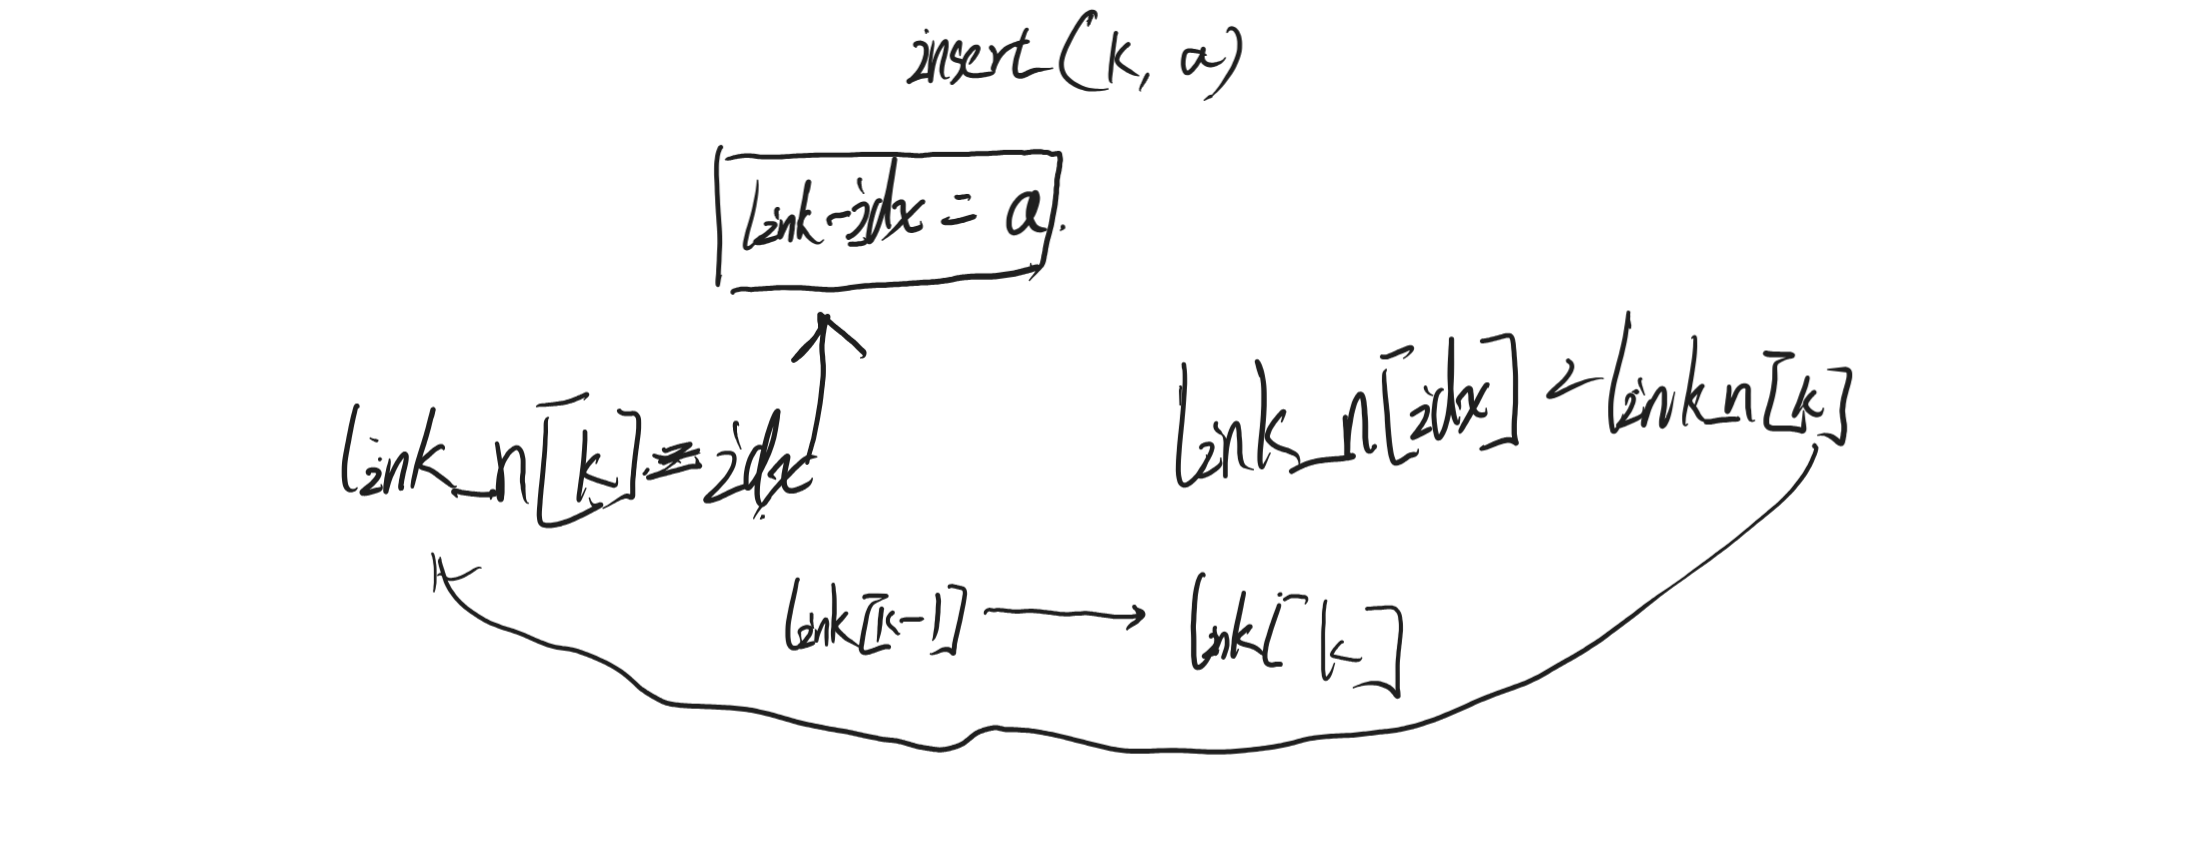 insert(k, a)
link-idx = a.
link_n[idx] ← link_n[k]
link_n[k] = idx
link[k-1] → link[k]